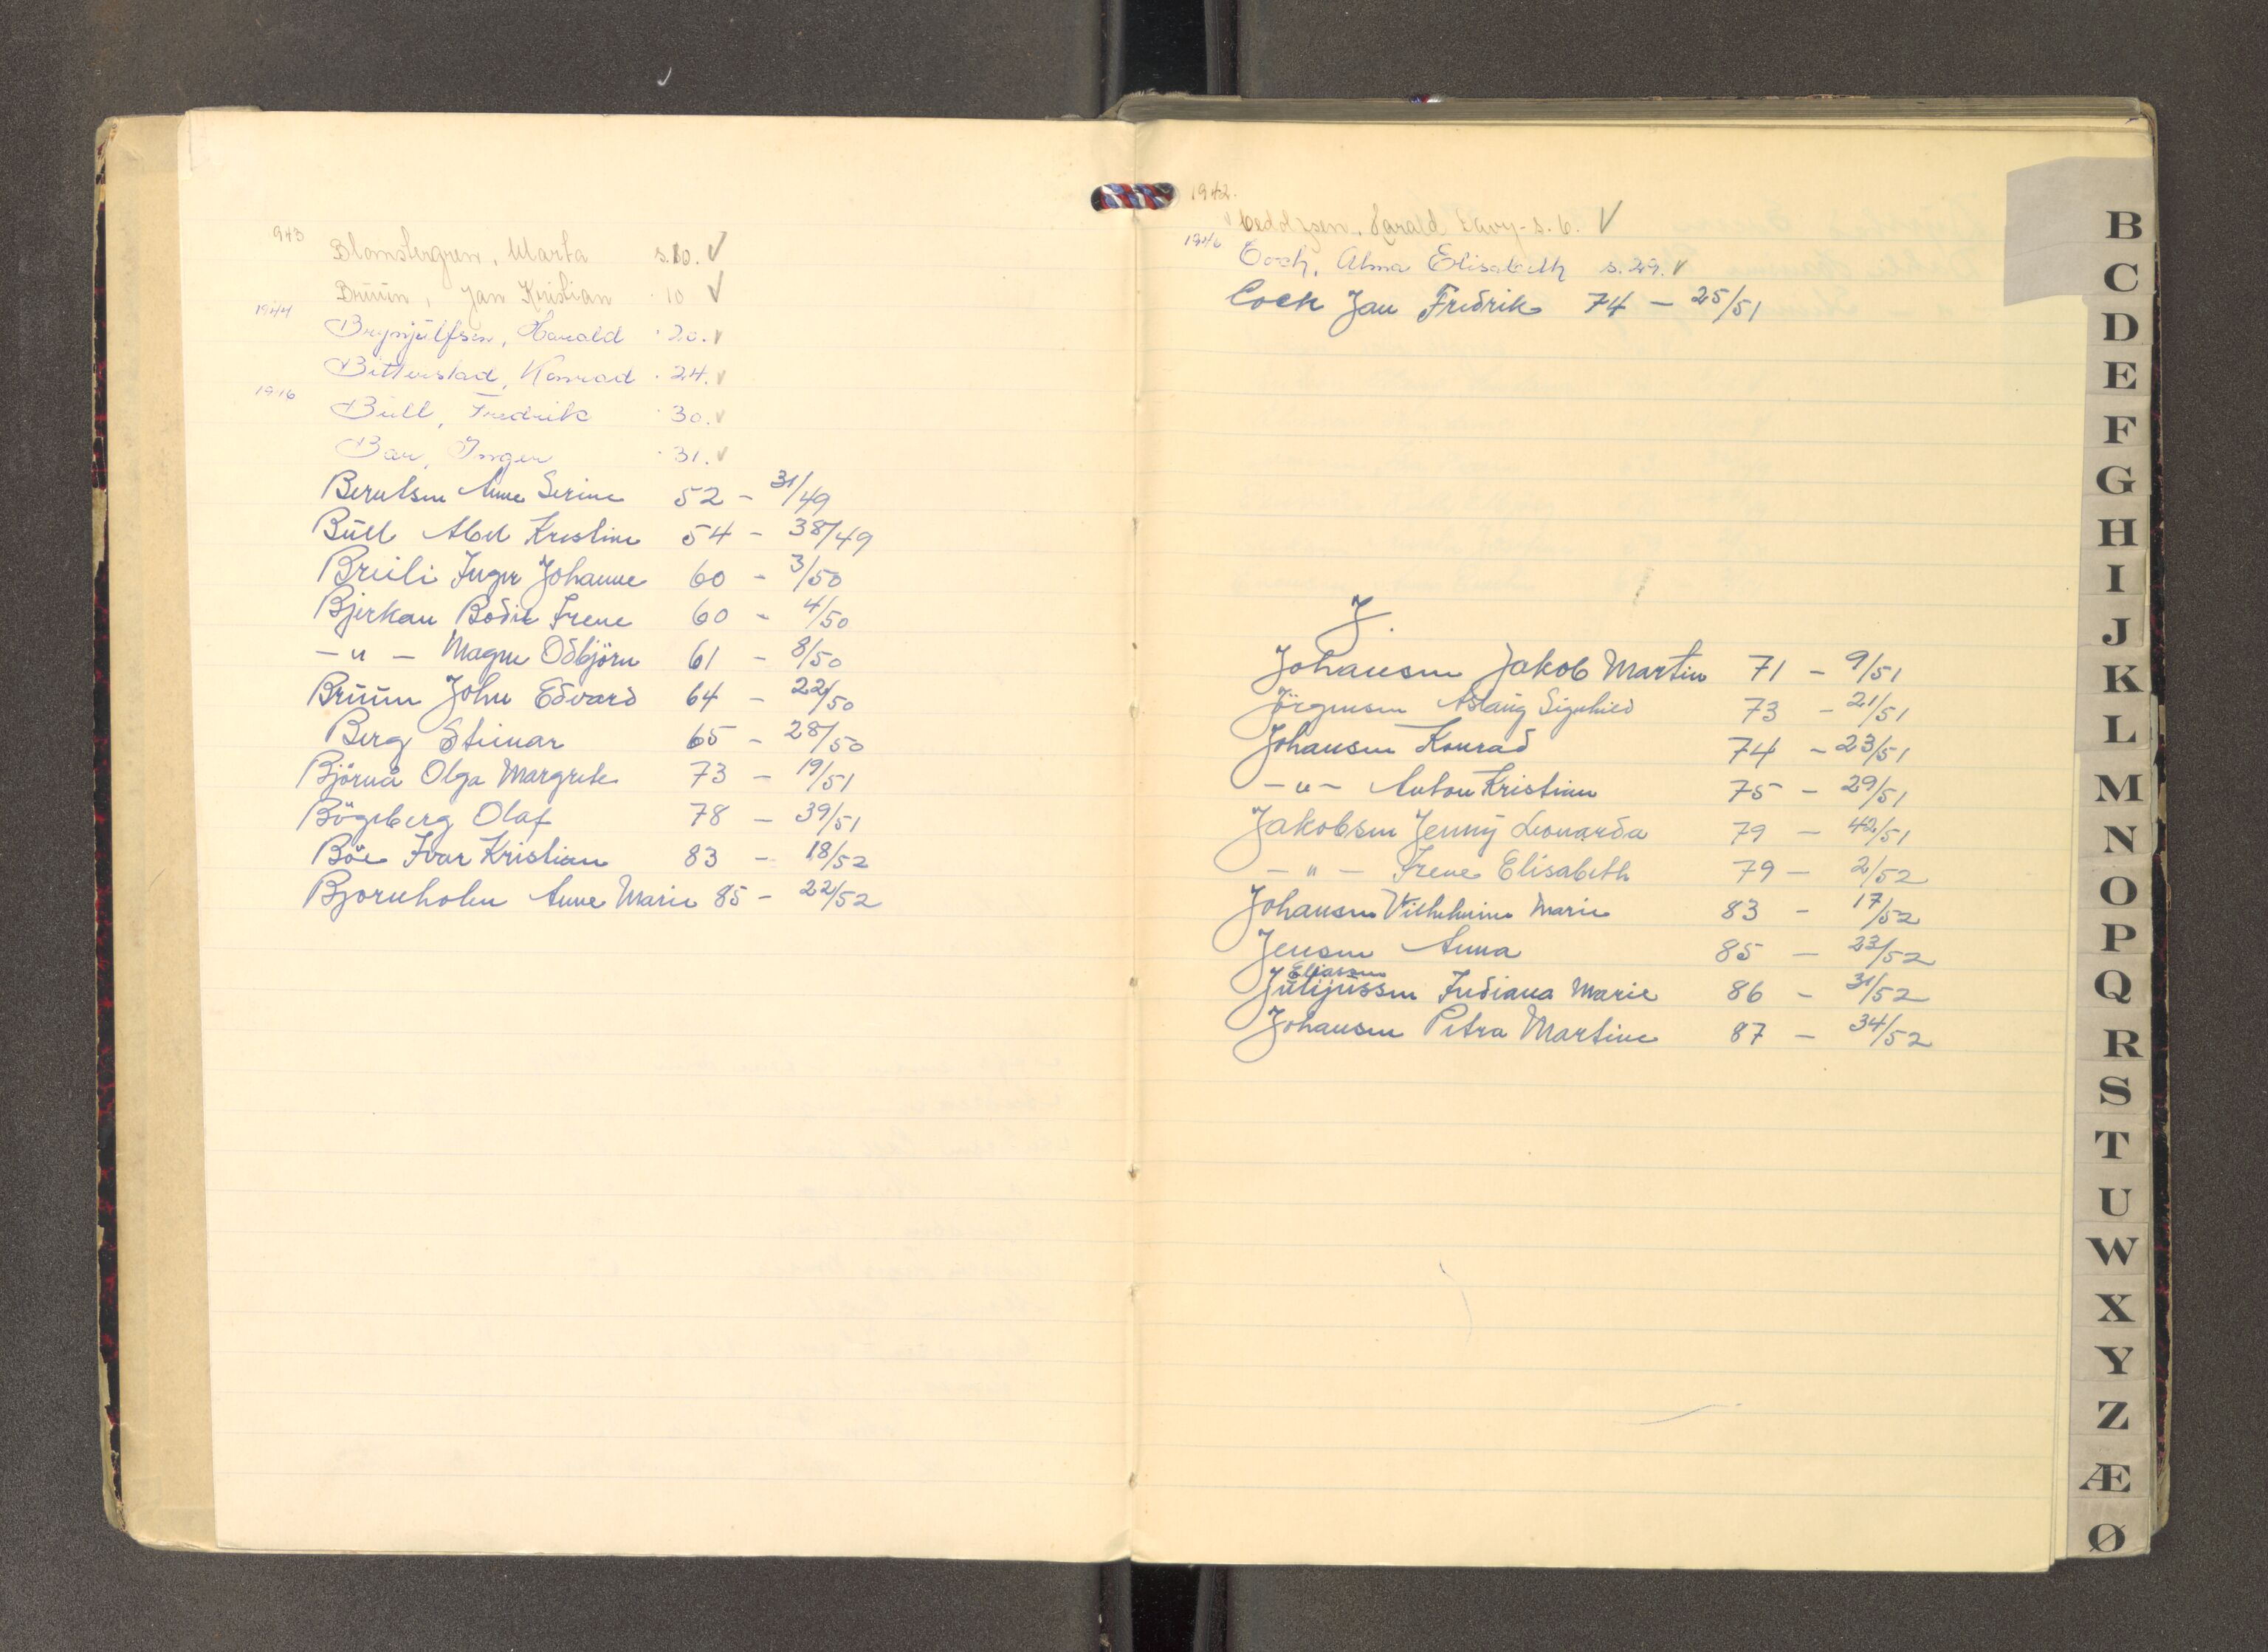 943
Blomstergren, Marta s.10. ✓
Bruun, Jan Kristian " 10 ✓
1944
Brynjulfsen, Harald " 20. ✓
Bitterstad, Konrad " 24. ✓
1946
Bull, Fredrik " 30. ✓
Bar, Inger " 31. ✓
Berntsen Anne Serine 52 - 31/49
Bull Abel Kristine 54 - 38/49
Breili Inger Johanne 60 - 3/50
Bjerkan Bodil Irene 60 - 4/50
- " - Magne Odbjörn 61 - 8/50
Bruun John Edvard 64 - 22/50
Berg Steinar 65 - 28/50
Björnå Olga Margrete 73 - 19/51
Bögeberg Olaf 78 - 39/51
Böe Ivar Kristian 83 - 18/52
Bjornholm Anne Marie 85 - 22/52
1942.
Harald Davy - s. 6. ✓
1946
Coch, Alma Elisabeth s. 29. ✓
Cock Jan Fredrik 74 - 25/51
J.
Johansen Jakob Martin 71 - 9/51
Jörgensen Aslaug Signhild 73 - 21/51
Johansen Konrad 74 - 23/51
- " - Anton Kristian 75 - 29/51
Jakobsen Jenny Leonarda 79 - 42/51
- " - Irene Elisabeth 79 - 2/52
Johansen Vilhelmine Marie 83 - 17/52
Jensen Anna 85 - 23/52
Eliassen
Julijussen Indiana Marie 86 - 31/52
Johansen Petra Martine 87 - 34/52
B
C
D
E
F
G
H
I
J
K
L
M
N
O
P
Q
R
S
T
U
W
X
Y
Z
Æ
Ø